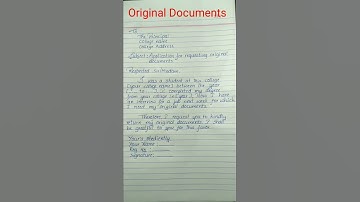 Original Documents
To
The principal
College name
College Address
Subject: Application for requesting original
documents
Respected Sir/Madam
I was a student at your college
(your college name) between the year
I completed my degree
from your college in (year). Now I have
an interview to a job next week for which
I need my original documents.
Therefore I request you to kindly
return my original documents. I shall
be grateful to you for this favor.
Yours obediently,
Your Name
Reg No
Signature: